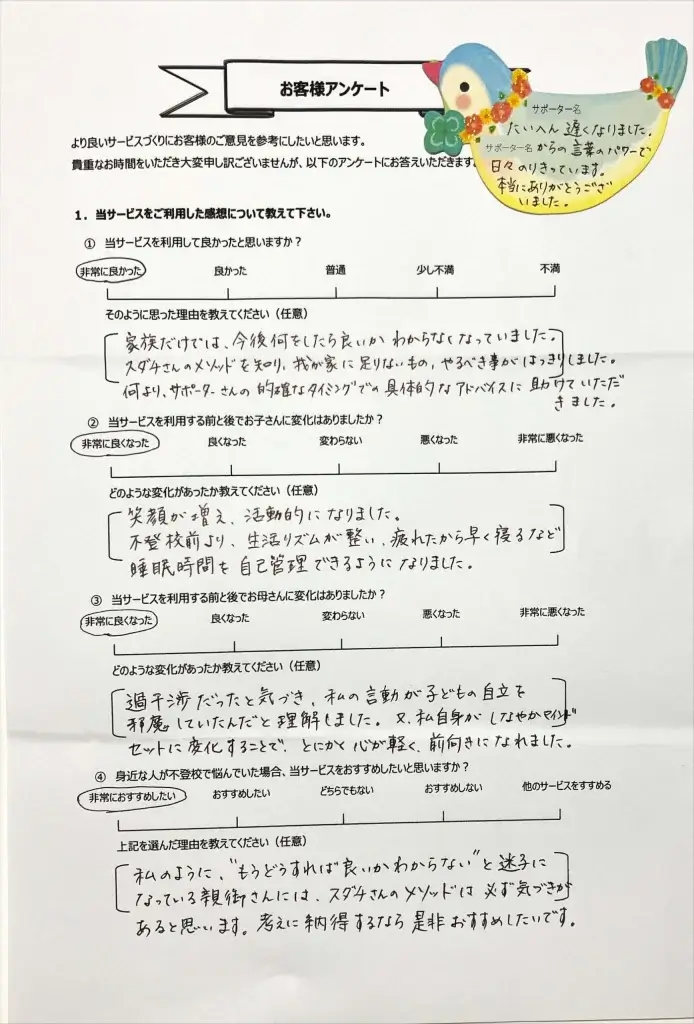 お客様アンケート
サポーター名
たいへん遅くなりました。
サポーター名 からの言葉のパワーで
日々のりきっています。
本当にありがとうござ
いました。
より良いサービスづくりにお客様のご意見を参考にしたいと思います。
貴重なお時間をいただき大変申し訳ございませんが、以下のアンケートにお答えいただきます
1．当サービスをご利用した感想について教えて下さい。
① 当サービスを利用して良かったと思いますか？
非常に良かった 良かった 普通 少し不満 不満
そのように思った理由を教えてください（任意）
家族だけでは、今後何をしたら良いかわからなくなっていました。
スダチさんのメソッドを知り、我が家に足りないもの、やるべき事がはっきりしました。
何より、サポーターさんの的確なタイミングでの具体的なアドバイスに助けていただ
きました。
② 当サービスを利用する前と後でお子さんに変化はありましたか？
非常に良くなった 良くなった 変わらない 悪くなった 非常に悪くなった
どのような変化があったか教えてください（任意）
笑顔が増え、活動的になりました。
不登校前より、生活リズムが整い、疲れたから早く寝るなど
睡眠時間を自己管理できるようになりました。
③ 当サービスを利用する前と後でお母さんに変化はありましたか？
非常に良くなった 良くなった 変わらない 悪くなった 非常に悪くなった
どのような変化があったか教えてください（任意）
過干渉だったと気づき、私の言動が子どもの自立を
邪魔していたんだと理解しました。又、私自身がしなやかマインド
セットに変化することで、とにかく心が軽く、前向きになれました。
④ 身近な人が不登校で悩んでいた場合、当サービスをおすすめしたいと思いますか？
非常におすすめしたい おすすめしたい どちらでもない おすすめしない 他のサービスをすすめる
上記を選んだ理由を教えてください（任意）
私のように、“もうどうすれば良いかわからない”と迷子に
なっている親御さんには、スダチさんのメソッドは必ず気づきが
あると思います。考えに納得するなら是非おすすめしたいです。